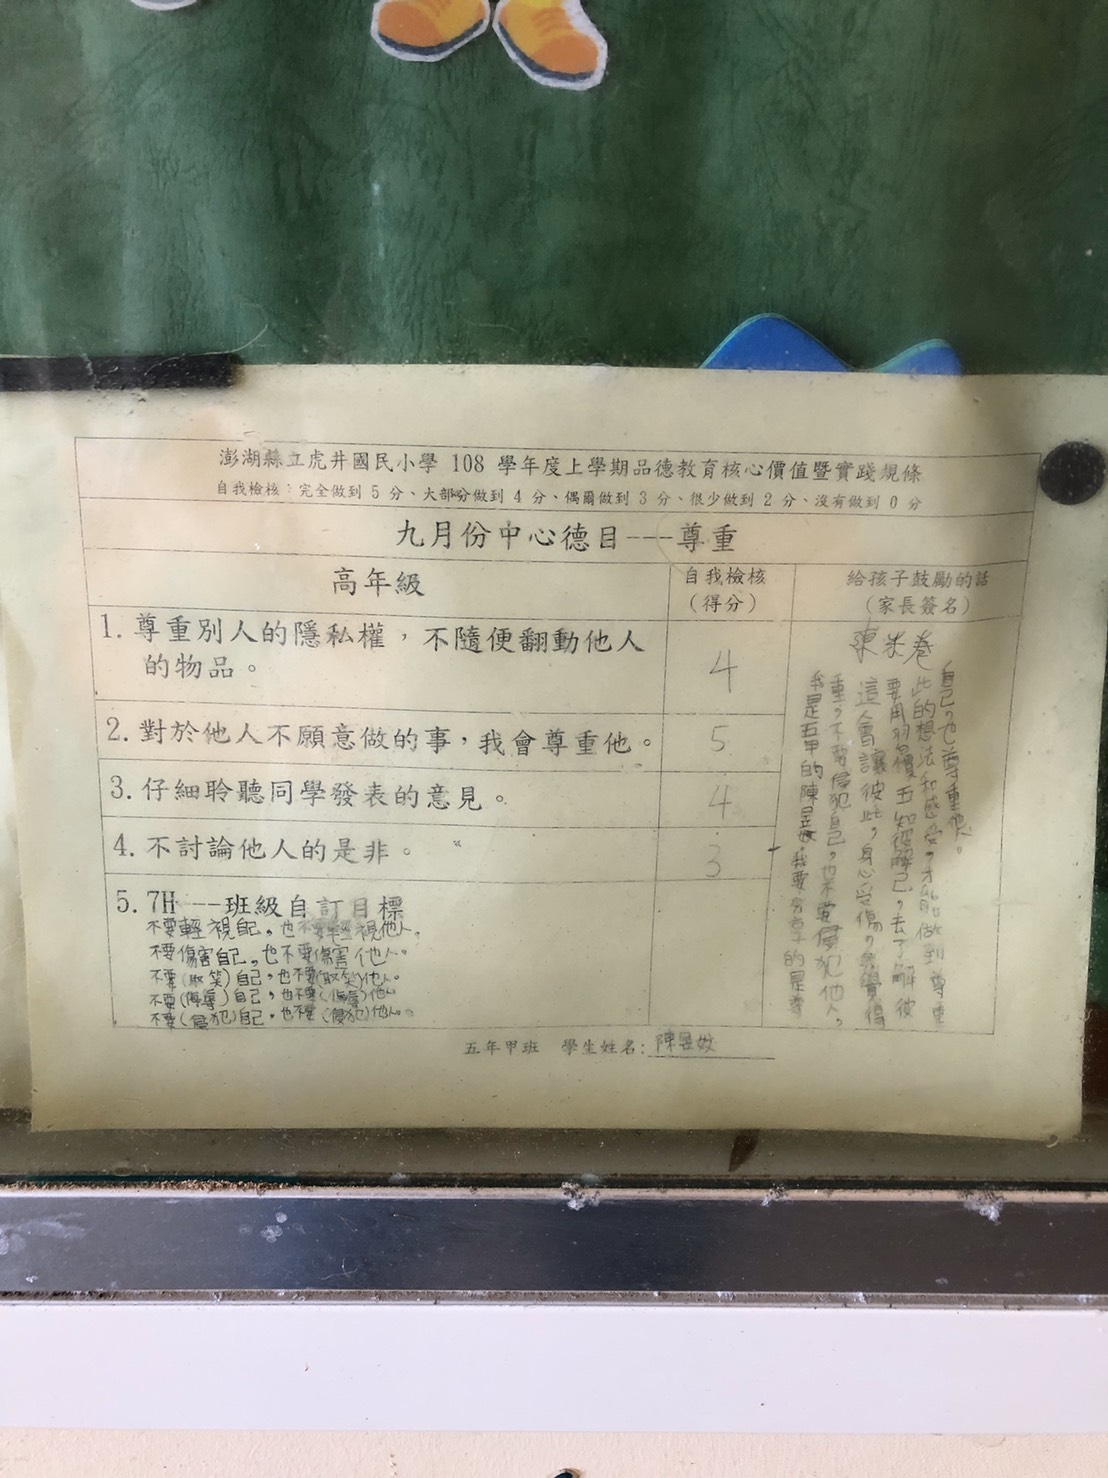 澎湖縣立虎井國民小學 108 學年度上學期品德教育核心價值暨實踐規條
自我檢核：完全做到 5 分、大部分做到 4 分、偶爾做到 3 分、很少做到 2 分、沒有做到 0 分
九月份中心德目---尊重
高年級
自我檢核
（得分）
給孩子鼓勵的話
（家長簽名）
1. 尊重別人的隱私權，不隨便翻動他人
的物品。
4
2. 對於他人不願意做的事，我會尊重他。
5
3. 仔細聆聽同學發表的意見。
4
4. 不討論他人的是非。
3
5. 7H ---班級自訂目標
不要輕視自己，也不要輕視他人。
不要傷害自己，也不要傷害他人。
不要(取笑)自己，也不要(取笑)他人。
不要(侮辱)自己，也不要(侮辱)他人
不要(侵犯)自己，也不要(侵犯)他人。
陳
我是五甲的陳昱妏，我要分享的是尊
重，不要侵犯自己，也不要侵犯他人，
這會讓彼此，身心受傷，我覺得
要用，去了解彼
此的想法和感受，才能做到尊重
自己，也尊重他人。
五年甲班 學生姓名：陳昱妏